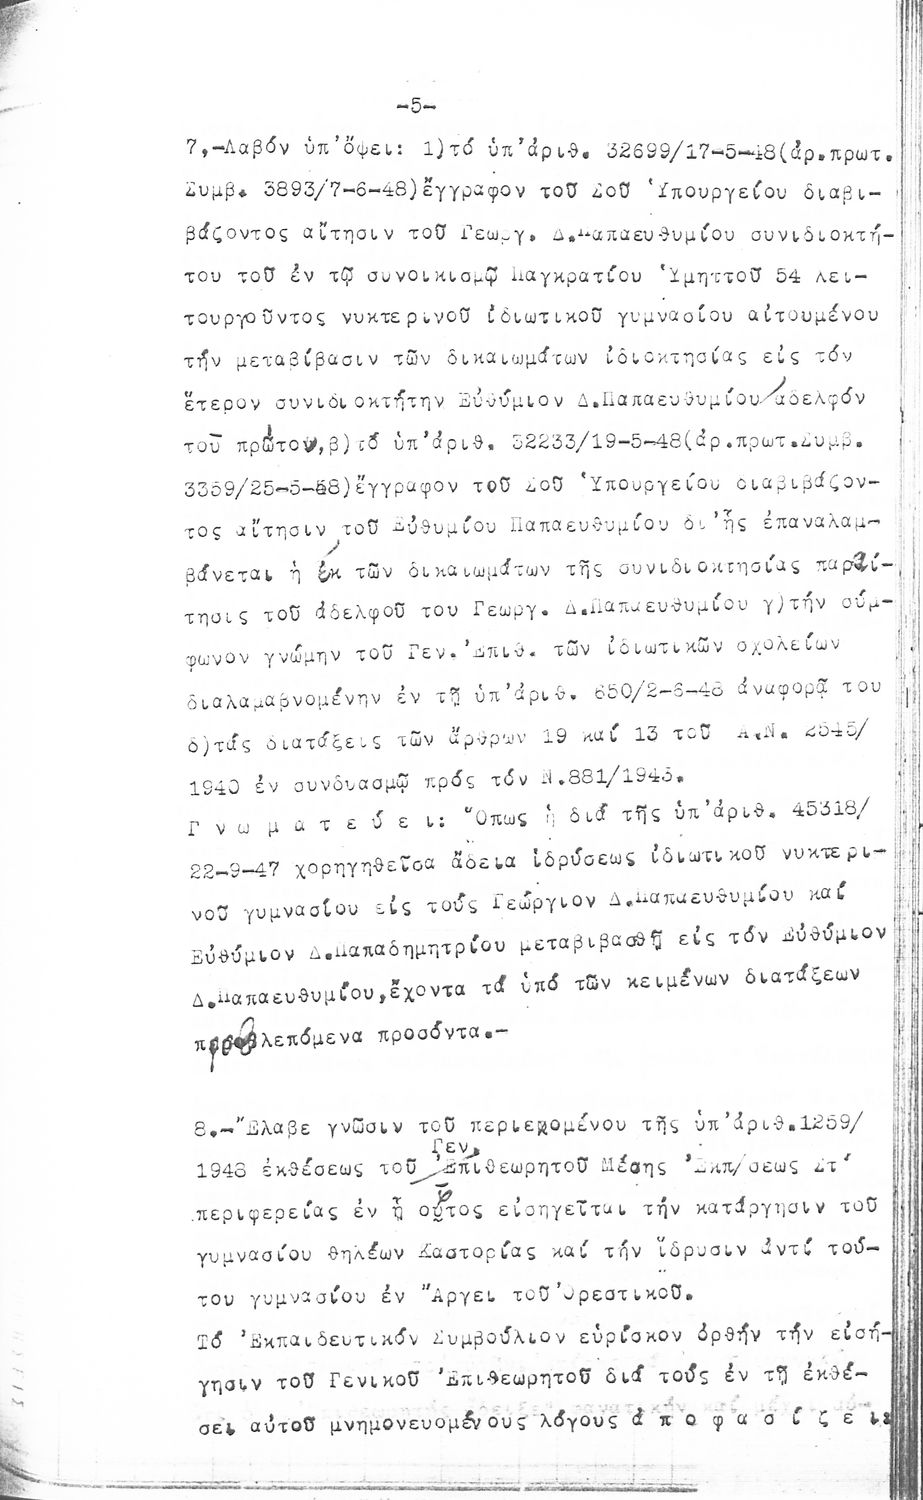 -5-
7,-Λαβόν ὑπ'ὄψει: 1)τό ὑπ'ἀριθ. 32699/17-5-48(ἀρ.πρωτ.
Συμβ. 3893/7-6-48)ἔγγραφον τοῦ Σοῦ Ὑπουργείου διαβι-
βάζοντος αἴτησιν τοῦ Γεωργ. Δ.Παπαευθυμίου συνιδιοκτή-
του τοῦ ἐν τῷ συνοικισμῷ Παγκρατίου Ὑμηττοῦ 54 λει-
τουργοῦντος νυκτερινοῦ ἰδιωτικοῦ γυμνασίου αἰτουμένου
τήν μεταβίβασιν τῶν δικαιωμάτων ἰδιοκτησίας εἰς τόν
ἕτερον συνιδιοκτήτην Εὐθύμιον Δ.Παπαευθυμίου ἀδελφόν
τοῦ πρώτου,β)τό ὑπ'ἀριθ. 32233/19-5-48(ἀρ.πρωτ.Συμβ.
3359/25-5-48)ἔγγραφον τοῦ Σοῦ Ὑπουργείου διαβιβάζον-
τος αἴτησιν τοῦ Εὐθυμίου Παπαευθυμίου δι'ἧς ἐπαναλαμ-
βάνεται ἡ ἐκ τῶν δικαιωμάτων τῆς συνιδιοκτησίας παραί-
τησις τοῦ ἀδελφοῦ του Γεωργ. Δ.Παπαευθυμίου γ)τήν σύμ-
φωνον γνώμην τοῦ Γεν.Ἐπιθ. τῶν ἰδιωτικῶν σχολείων
διαλαμαβνομένην ἐν τῇ ὑπ'ἀριθ. 650/2-6-48 ἀναφορᾷ του
δ)τάς διατάξεις τῶν ἄρθρων 19 καί 13 τοῦ Α.Ν. 2545/
1940 ἐν συνδυασμῷ πρός τόν Ν.881/1943.
Γ ν ω μ α τ ε ύ ε ι: Ὅπως ἡ διά τῆς ὑπ'ἀριθ. 45318/
22-9-47 χορηγηθεῖσα ἄδεια ἱδρύσεως ἰδιωτικοῦ νυκτερι-
νοῦ γυμνασίου εἰς τούς Γεώργιον Δ.Παπαευθυμίου καί
Εὐθύμιον Δ.Παπαδημητρίου μεταβιβασθῇ εἰς τόν Εὐθύμιον
Δ.Παπαευθυμίου,ἔχοντα τά ὑπό τῶν κειμένων διατάξεων
προβλεπόμενα προσόντα.-
8.-Ἔλαβε γνῶσιν τοῦ περιεχομένου τῆς ὑπ'ἀριθ.1259/
Γεν.
1948 ἐκθέσεως τοῦ Ἐπιθεωρητοῦ Μέσης Ἐκπ/σεως Στ'
περιφερείας ἐν ᾗ οὗτος εἰσηγεῖται τήν κατάργησιν τοῦ
γυμνασίου θηλέων Καστορίας καί τήν ἵδρυσιν ἀντί τού-
του γυμνασίου ἐν Ἄργει τοῦ Ὀρεστικοῦ.
Τό Ἐκπαιδευτικόν Συμβούλιον εὑρίσκον ὀρθήν τήν εἰσή-
γησιν τοῦ Γενικοῦ Ἐπιθεωρητοῦ διά τούς ἐν τῇ ἐκθέ-
σει αὐτοῦ μνημονευομένους λόγους ἀ π ο φ α σ ί ζ ε ι: